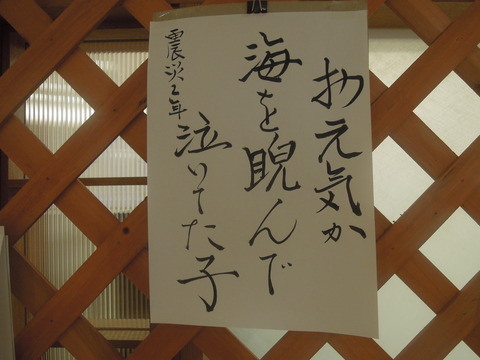 お元気か
海を睨んで
泣いてた子
震災2年